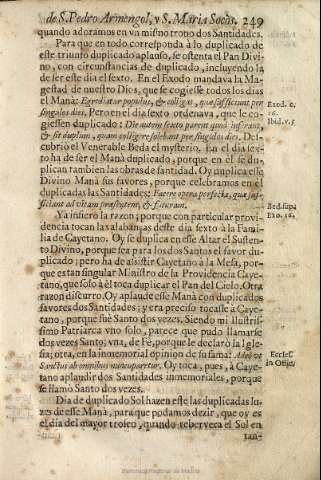 de S. Pedro Armengol, y S. Maria Socòs. 249
quando adoramos en vn mismo trono dos Santidades.
Para que en todo corresponda à lo duplicado de
este triunfo duplicado aplauso, se ostenta el Pan Divi-
no, con circunstancias de duplicado, incluyendo la
de ser este dia el sexto. En el Exodo mandava la Ma-
gestad de nuestro Dios, que se cogiesse todos los dias
el Manà: Egrediatur populus, & colligat, quæ sufficiunt per
singulos dies. Pero en el dia sexto ordenava, que le co-
giessen duplicado: Die autem sexto parent quod inferant,
& sit duplum, quam colligere solebant per singulos dies. Des-
cubriò el Venerable Beda el mysterio. En el dia sex-
to ha de ser el Manà duplicado, porque en èl se du-
plican tambien las obras de santidad. Oy duplica esse
Divino Manà sus favores, porque celebramos en el
duplicadas las Santidades: Facere opera perfecta, quæ suf-
ficiant ad vitam præsentem, & futuram.
Exod. c.
16.
Ibid. v. 5
Bed. supr.
Exo. 16.
Ya infiero la razon; porque con particular provi-
dencia tocan las alabanças deste dia sexto à la Fami-
lia de Cayetano. Oy se duplica en esse Altar el Susten-
to Divino, porque sea para los dos Santos el favor du-
plicado; pero ha de assistir Cayetano à la Mesa, por-
que es tan singular Ministro de la Providencia Caye-
tano, que solo à èl toca duplicar el Pan del Cielo. Otra
razon discurro. Oy aplaude esse Manà con duplicados
favores dos Santidades; y era preciso tocasse à Caye-
tano, porque fuè Santo dos vezes. Siendo mi Ilustris-
simo Patriarca vno solo, parece que pudo llamarse
dos vezes Santo; vna, de Fè, porque le declarò la Igle-
sia; otra, en la inmemorial opinion de su fama: Adeò ut
Sanctus ab omnibus nuncuparetur. Oy toca, pues, à Caye-
tano aplaudir dos Santidades inmemoriales, porque
se llamò Santo dos vezes.
Eccles.
in Offic.
Dia de duplicado Sol hazen este las duplicadas lu-
zes de esse Manà, para que podamos dezir, que oy es
el dia del mayor trofeo, quando reberverà el Sol en
tan-
Biblioteca Regional de Madrid